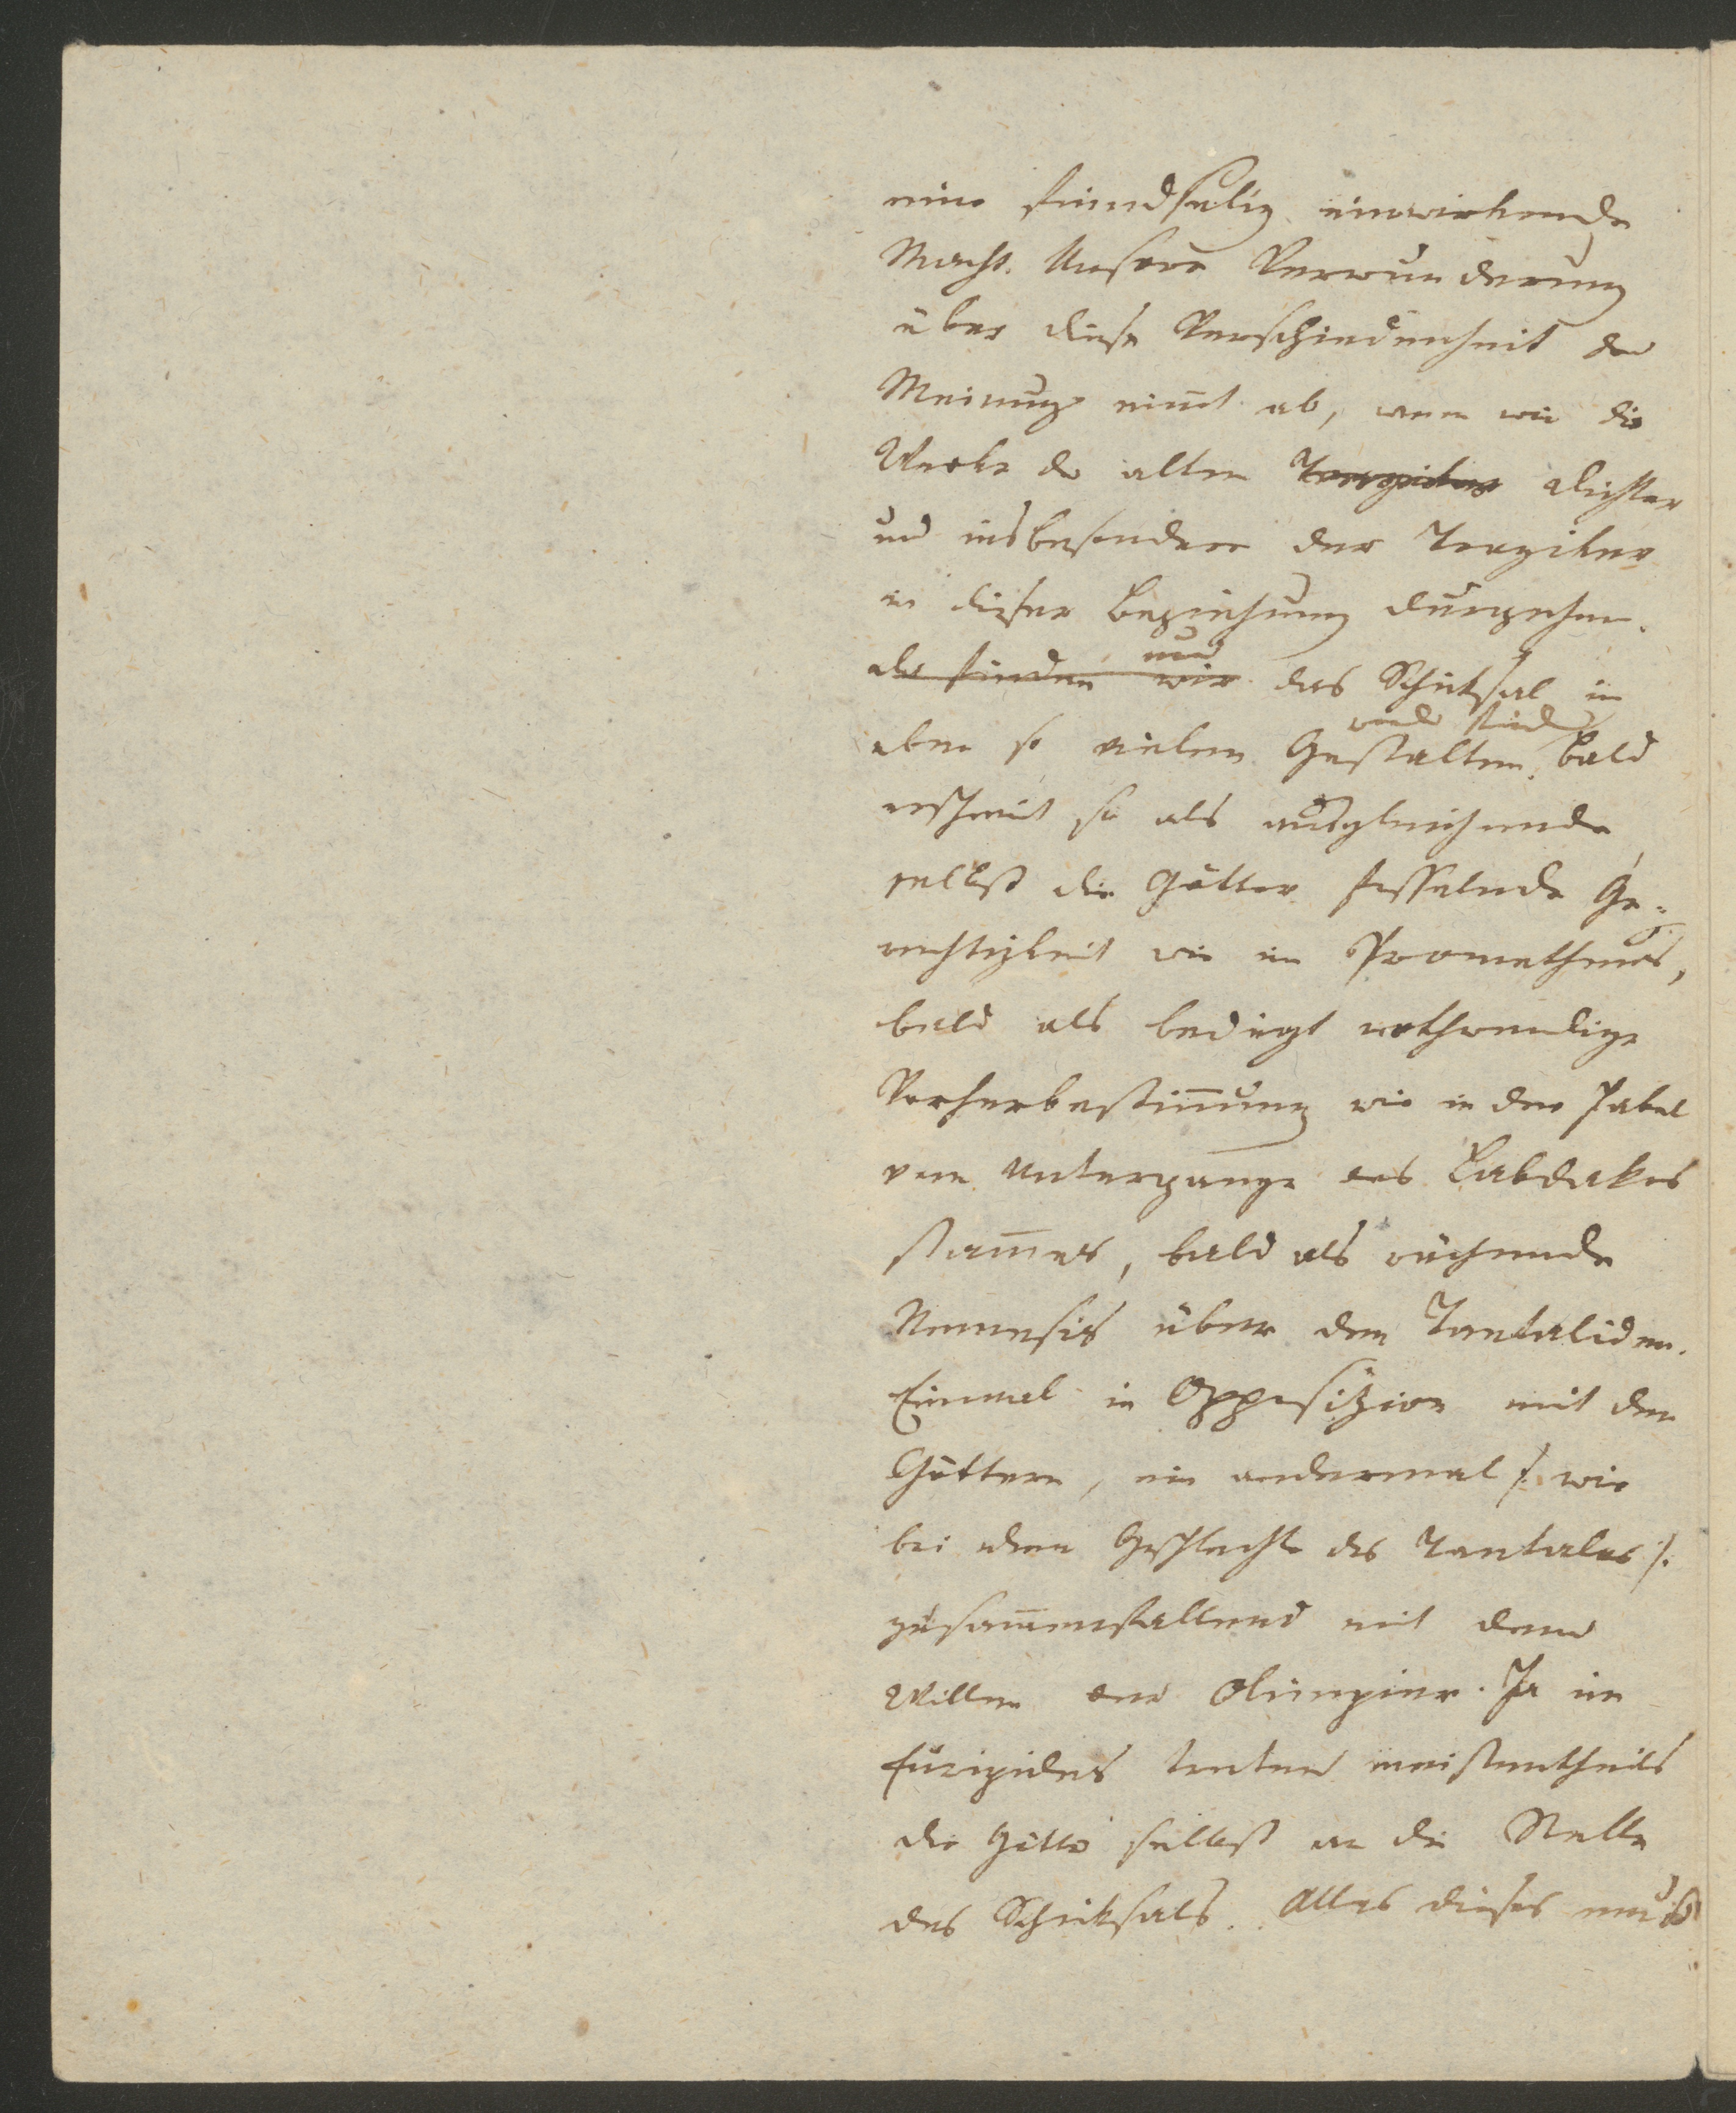 eine feindselig einwirkende
Macht. Unsere Verwunderung
über diese Verschiedenheit der
Meinung nim̅t ab, wenn wir die
Werke der alten Tragiker Dichter
und insbesondere der Tragiker
in dieser Beziehung durchgehen.
und
da finden wir das Schicksal in
eben so vielen Gestalten. Bald
erscheint sie als ausgleichende
selbst die Götter fesselnde Ge-
rechtigkeit wie im Prometheus,
bald als bedingt nothwendige
Vorherbestim̅ung wie in der Fabel
vom Untergange des Labdakos
stam̅es, bald als rächende
Nemesis über den Tantaliden.
Einmal in Opposizion mit den
Göttern, ein andermal /: wie
bei dem Geschlechte des Tantalus :/
zusam̅enfallend mit dem
Willen der Olimpier. Ja im
Euripides treten meistentheils
die Götter selbst an die Stelle
des Schicksals. Alles dieses muß